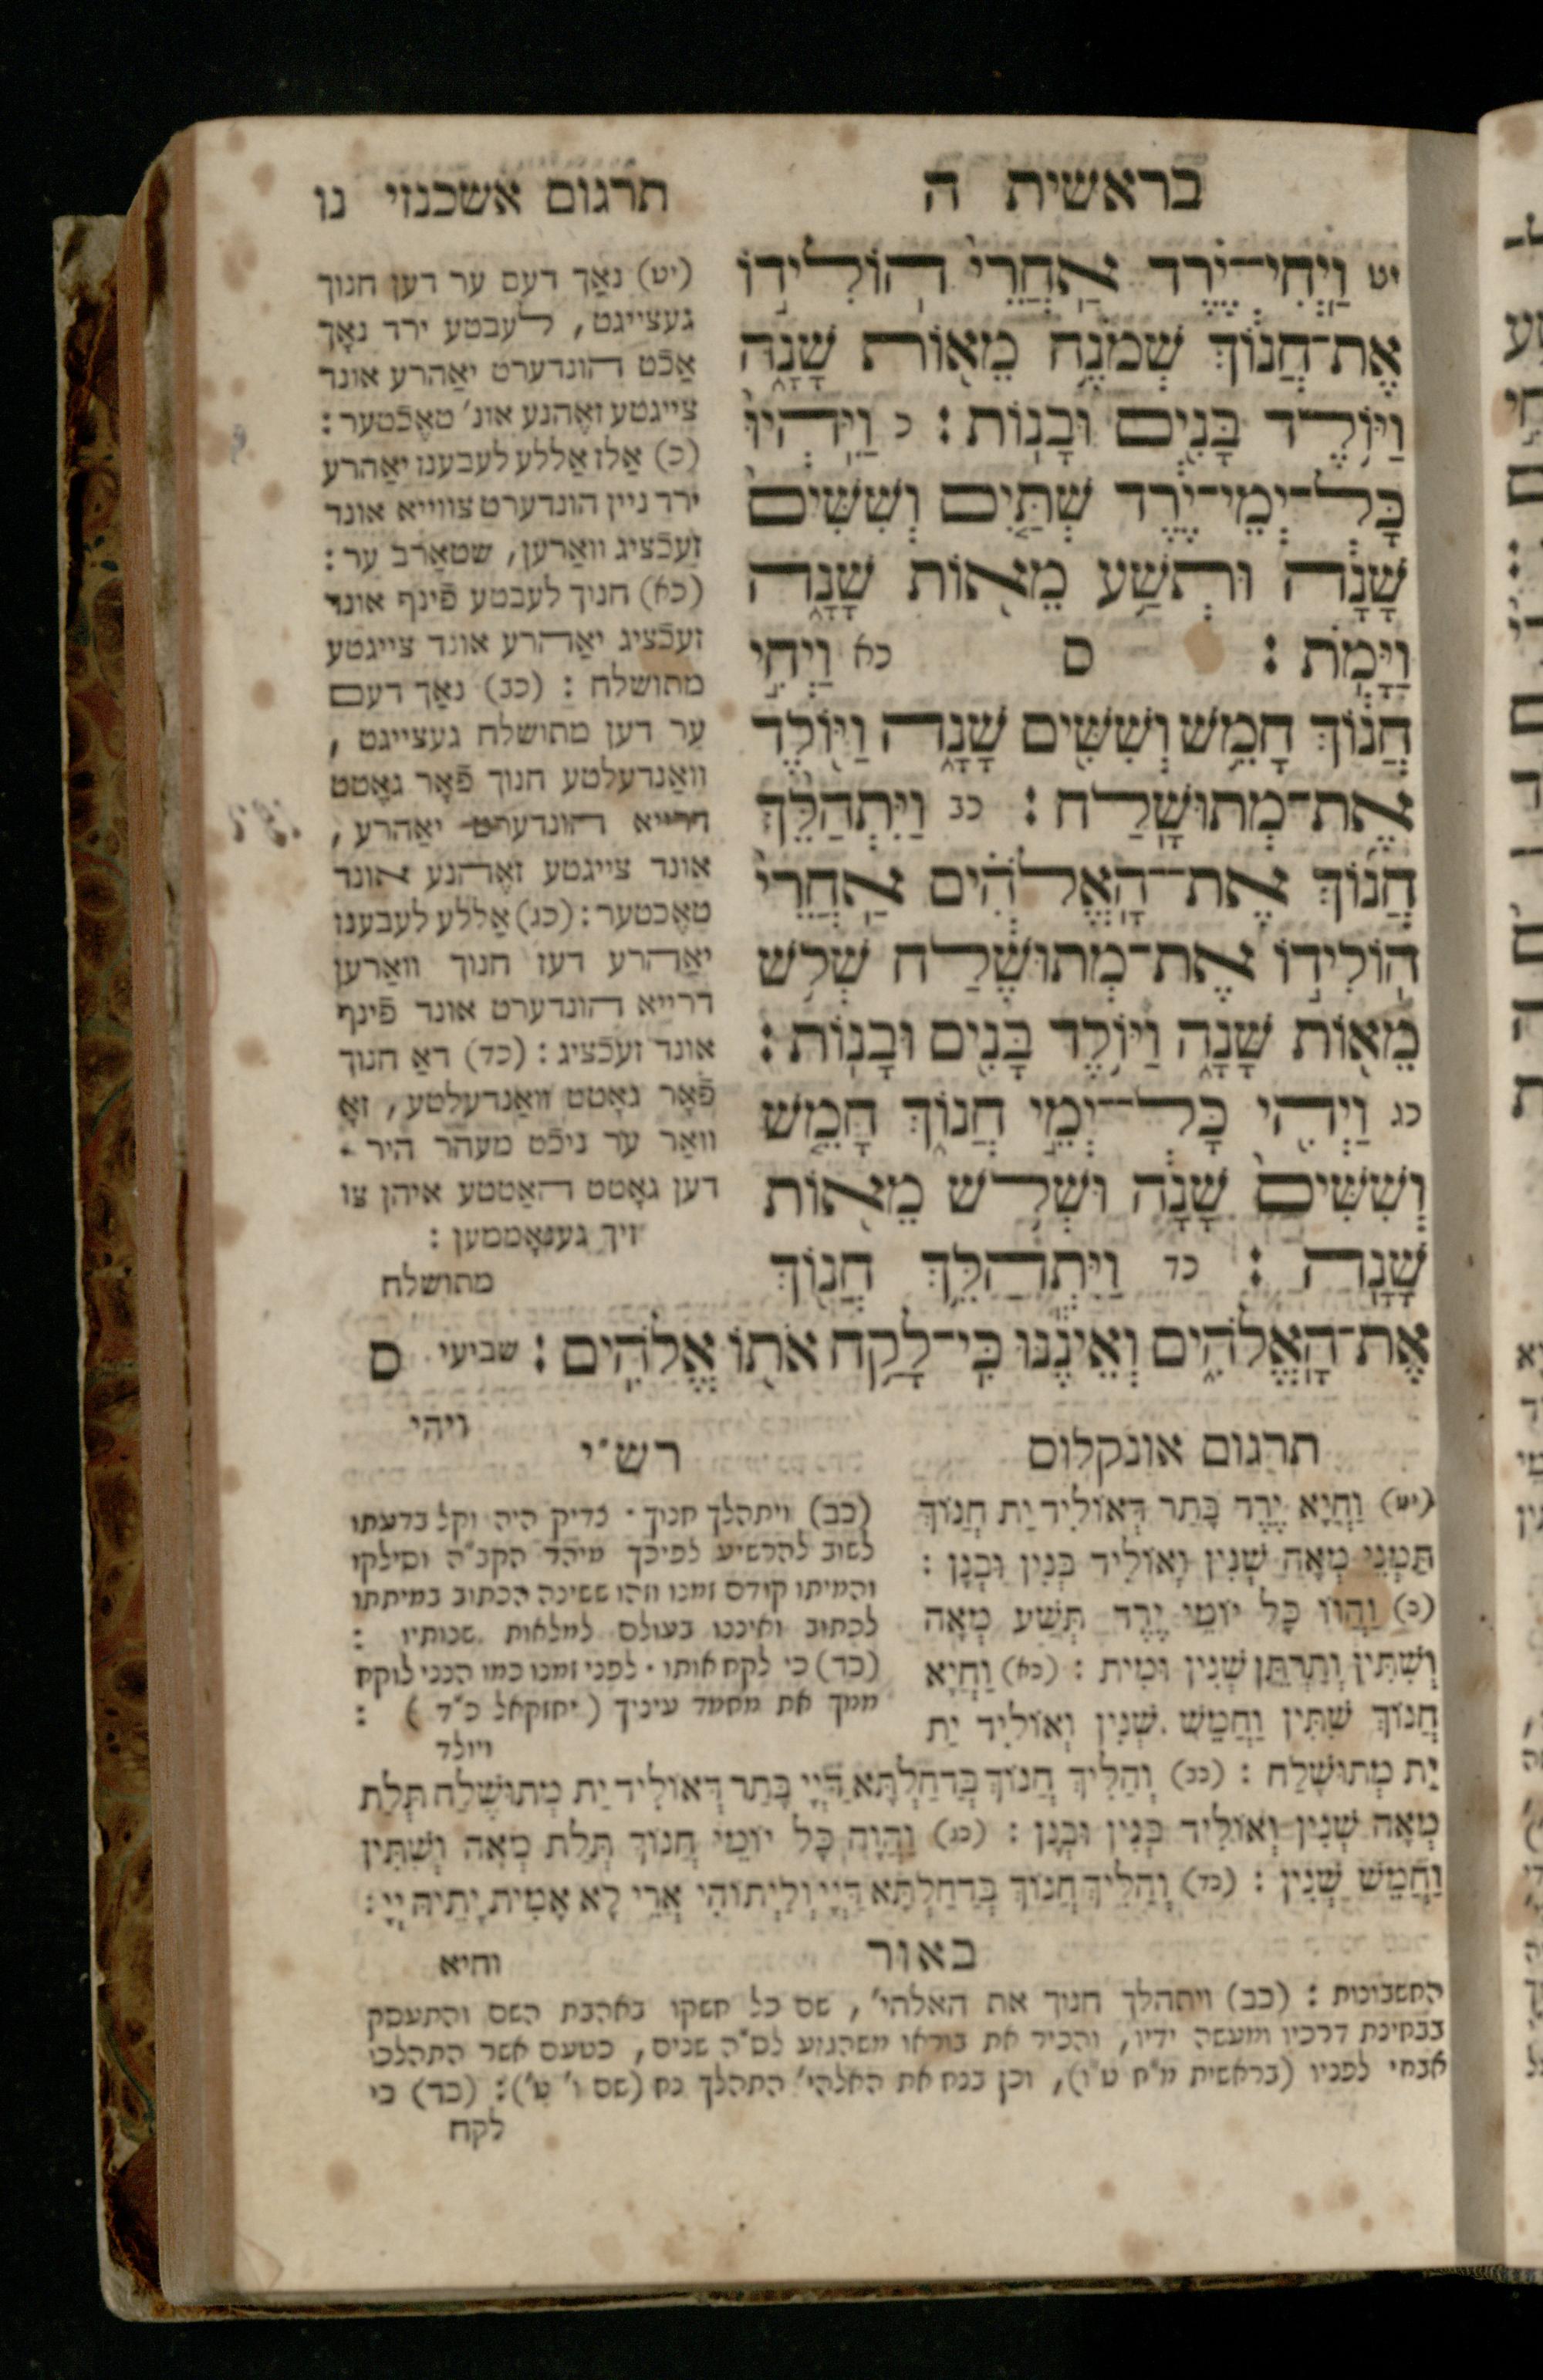 בראשית ה
תרגום אשכנזי נו
יט וַיְחִי־יֶרֶד אַחֲרֵי הוֹלִידוֹ
אֶת־חֲנוֹךְ שְׁמֹנֶה מֵאוֹת שָׁנָה
וַיּוֹלֶד בָּנִים וּבָנוֹת : כ וַיִּהְיוּ
כָּל־יְמֵי־יֶרֶד שְׁתַּיִם וְשִׁשִּׁים
שָׁנָה וּתְשַׁע מֵאוֹת שָׁנָה
וַיָּמֹת : ס כא וַיְחִי
חֲנוֹךְ חָמֵשׁ וְשִׁשִּׁים שָׁנָה וַיּוֹלֶד
אֶת־מְתוּשָׁלַח : כב וַיִּתְהַלֵּךְ
חֲנוֹךְ אֶת־הָאֱלֹהִים אַחֲרֵי
הוֹלִידוֹ אֶת־מְתוּשֶׁלַח שְׁלֹשׁ
מֵאוֹת שָׁנָה וַיּוֹלֶד בָּנִים וּבָנוֹת :
כג וַיְהִי כָּל־יְמֵי חֲנוֹךְ חָמֵשׁ
וְשִׁשִּׁים שָׁנָה וּשְׁלֹשׁ מֵאוֹת
שָׁנָה : כד וַיִּתְהַלֵּךְ חֲנוֹךְ
אֶת־הָאֱלֹהִים וְאֵינֶנּוּ כִּי־לָקַח אֹתוֹ אֱלֹהִים : שביעי ס
ויהי
(יט) נאַך דעם ער דען חנוך
געצייגט, לעבטע ירד נאָך
אַכֿט הונדערט יאַהרע אונד
צייגטע זאֶהנע אונ' טאֶכֿטער :
(כ) אַלז אַללע לעבענז יאַהרע
ירד ניין הונדערט צווייא אונד
זעכֿציג וואַרען, שטאַרב ער :
(כא) חנוך לעבטע פֿינף אונד
זעכֿציג יאַהרע אונד צייגטע
מתושלח : (כב) נאַך דעם
ער דען מתושלח געצייגט ,
וואַנדעלטע חנוך פֿאָר גאָטט
דרייא הונדערט יאַהרע ,
אונד צייגטע זאֶהנע אונד
טאֶכטער : (כג) אַללע לעבענז
יאַהרע דעז חנוך וואַרען
דרייא הונדערט אונד פֿינף
אונד זעכֿציג : (כד) דאַ חנוך
פֿאָר גאָטט וואַנדעלטע, זאָ
וואַר ער ניכֿט מעהר היר ·
דען גאָטט האַטטע איהן צו
זיך גענאָממען :
מתושלח
תרגום אונקלוס
(יט) וַחֲיָא יֶרֶד בָּתַר דְּאוֹלִיד יַת חֲנוֹךְ
תַּמְנֵי מְאָה שְׁנִין וְאוֹלִיד בְּנִין וּבְנָן :
(כ) וַהֲווֹ כָּל יוֹמֵי יֶרֶד תְּשַׁע מְאָה
וְשִׁתִּין וְתַרְתֵּן שְׁנִין וּמִית : (כא) וַחֲיָא
חֲנוֹךְ שִׁתִּין וַחֲמֵשׁ שְׁנִין וְאוֹלִיד יַת
יַת מְתוּשָׁלַח : (כב) וְהַלִּיךְ חֲנוֹךְ בְּדַחַלְתָּא דַּיְיָ בָּתַר דְּאוֹלִיד יַת מְתוּשֶׁלַח תְּלַת
מְאָה שְׁנִין וְאוֹלִיד בְּנִין וּבְנָן : (כג) וַהֲוָה כָּל יוֹמֵי חֲנוֹךְ תְּלַת מְאָה וְשִׁתִּין
וַחֲמֵשׁ שְׁנִין : (כד) וְהַלִּיךְ חֲנוֹךְ בְּדַחַלְתָּא דַּיְיָ וְלַיְתוֹהִי אֲרֵי לָא אֲמִית יָתֵיהּ יְיָ :
וחיא
רש״י
(כב) ויתהלך חנוך · צדיק היה וקל בדעתו
לשוב להרשיע לפיכך מיהר הקב״ה וסילקו
והמיתו קודם זמנו וזהו ששינה הכתוב במיתתו
לכתוב ואיננו בעולם למלאות שנותיו :
(כד) כי לקח אותו · לפני זמנו כמו הנני לוקח
ממך את מחמד עיניך (יחזקאל כ״ד) :
ויולד
באור
החשבונות : (כב) ויתהלך חנוך את האלהי', שם כל חשקו באהבת השם והתעסק
בבחינת דרכיו ומעשה ידיו, והכיר את בוראו משהגיע לס״ה שנים, כטעם אשר התהלכו
אבתי לפניו (בראשית מ״ח ט״ו), וכן בנח את האלהי' התהלך נח (שם ו' ט') : (כד) כי
לקח